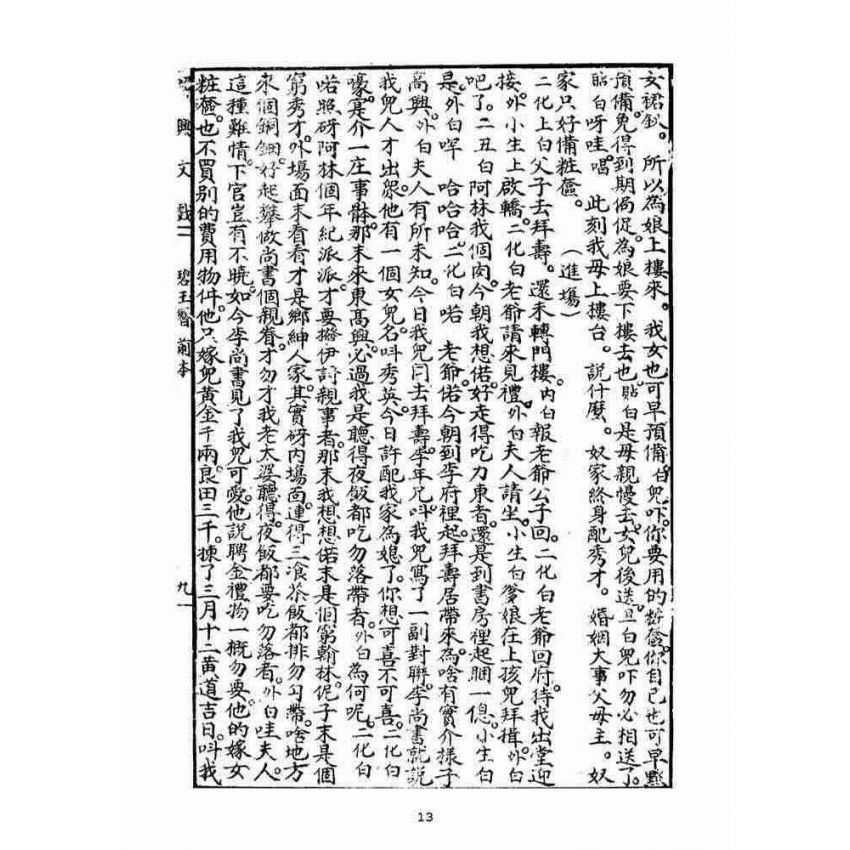 女裙釵。所以為娘上樓來。我女也可早預備白兒吓。你要用的粧奩。你自己也可早點
預備。免得到期侷促。為娘要下樓去也。貼白是母親慢去。女兒後送。旦白兒吓勿必相送了。
貼白呀哇。唱。此刻我母上樓台。說什麼。奴家終身配秀才。婚姻大事父母主。奴
家只好備粧奩。（進塲）
二化上白父子去拜壽。還未轉門樓。內白報老爺公子回。二化白老爺回府。待我出堂迎
接。外小生上啟轎。二化白老爺請來見禮。外白夫人請坐。小生白爹娘在上孩兒拜揖。外白
吧了。二丑白阿林我個肉。今朝我想偌。好走得吃力東者。還是到書房裡起睏一傯。小生白
是。外白哻哈哈哈。二化白喏老爺。偌今朝到李府裡起拜壽居帶來。為啥有實介樣子
高興。外白夫人有所未知。今日我兒同去拜壽。李年兄叫我兒寫了一副對聯。李尚書就說
我兒人才出眾。他有一個女兒。名叫秀英。今日許配我家為媳了。你想可喜不可喜。二化白
嚎寔介一庄事骵。那末來東高興。必過我是聽得夜飯都吃勿落帶者。外白為何呢。二化白
喏照砑阿林個年紀派派。才要撥伊討親事者。那末我想想偌末是個窮翰林。伲子末是個
窮秀才。外塲面末看看才是鄉紳人家。其實砑內塲面。連得三飡茶飯都排勿勻帶。啥地方
來個銅鈿。好起攀做尚書個親眷。才勿才我老太婆聽得。夜飯都要吃勿落者。外白哇夫人。
這種難情。下官豈有不曉。如今李尚書見了我兒可愛。他說聘金禮物一概勿要。他的嫁女
粧奩。也不買別的費用物件。他只嫁兒黃金千兩。良田三千。揀了三月十二黄道吉日。叫我
紹興文戲 碧玉簪前本 九一
13